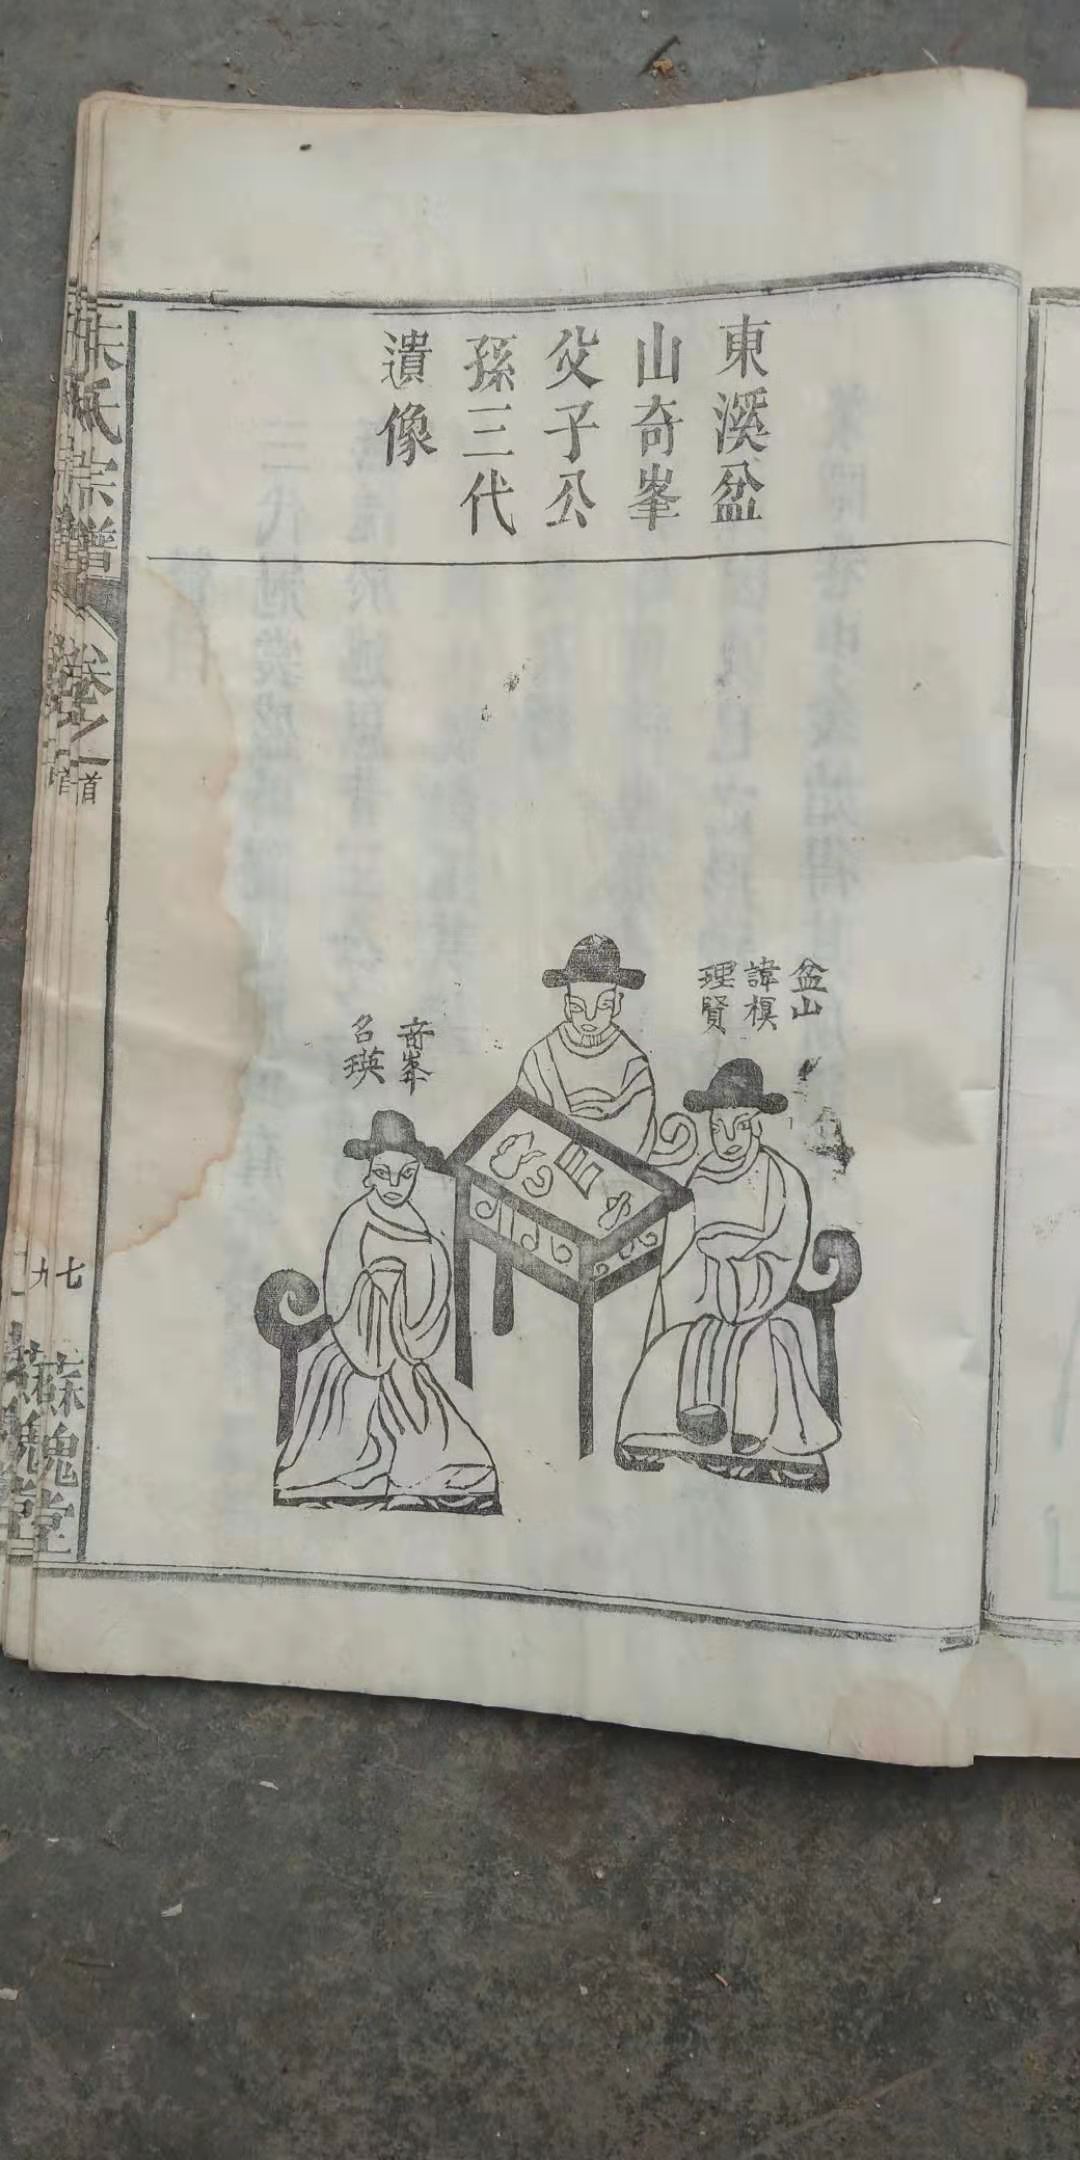 東溪盆
山奇峯
父子公
孫三代
遺像
盆山
諱模
理賢
奇峯
名瑛
氏宗譜
卷之首
七
九
蘇愧堂